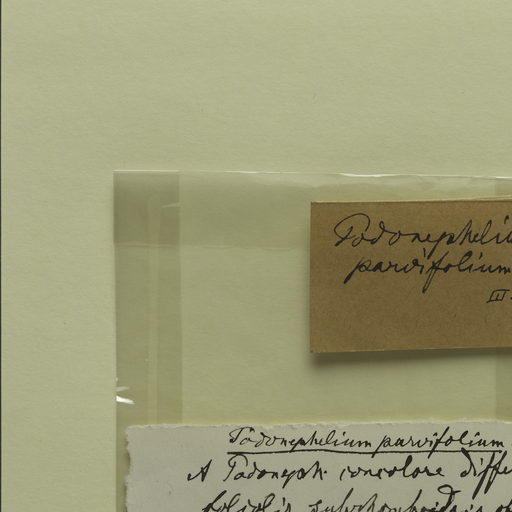 Podonepheliu
parvifolium
III.
Podonephelium parvifolium
A Podoneph. concolore diffe
foliolis subrhomboidais